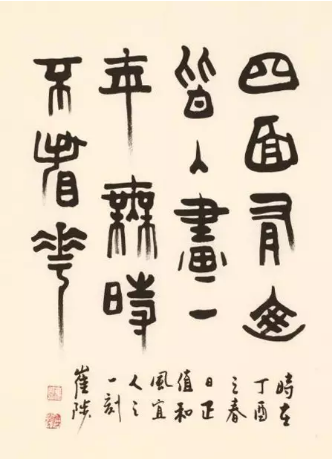 四面有山
皆入畫一
年無時
不看花
時在
丁酉
之春
日正
值和
風宜
人之
一刻
崔陟